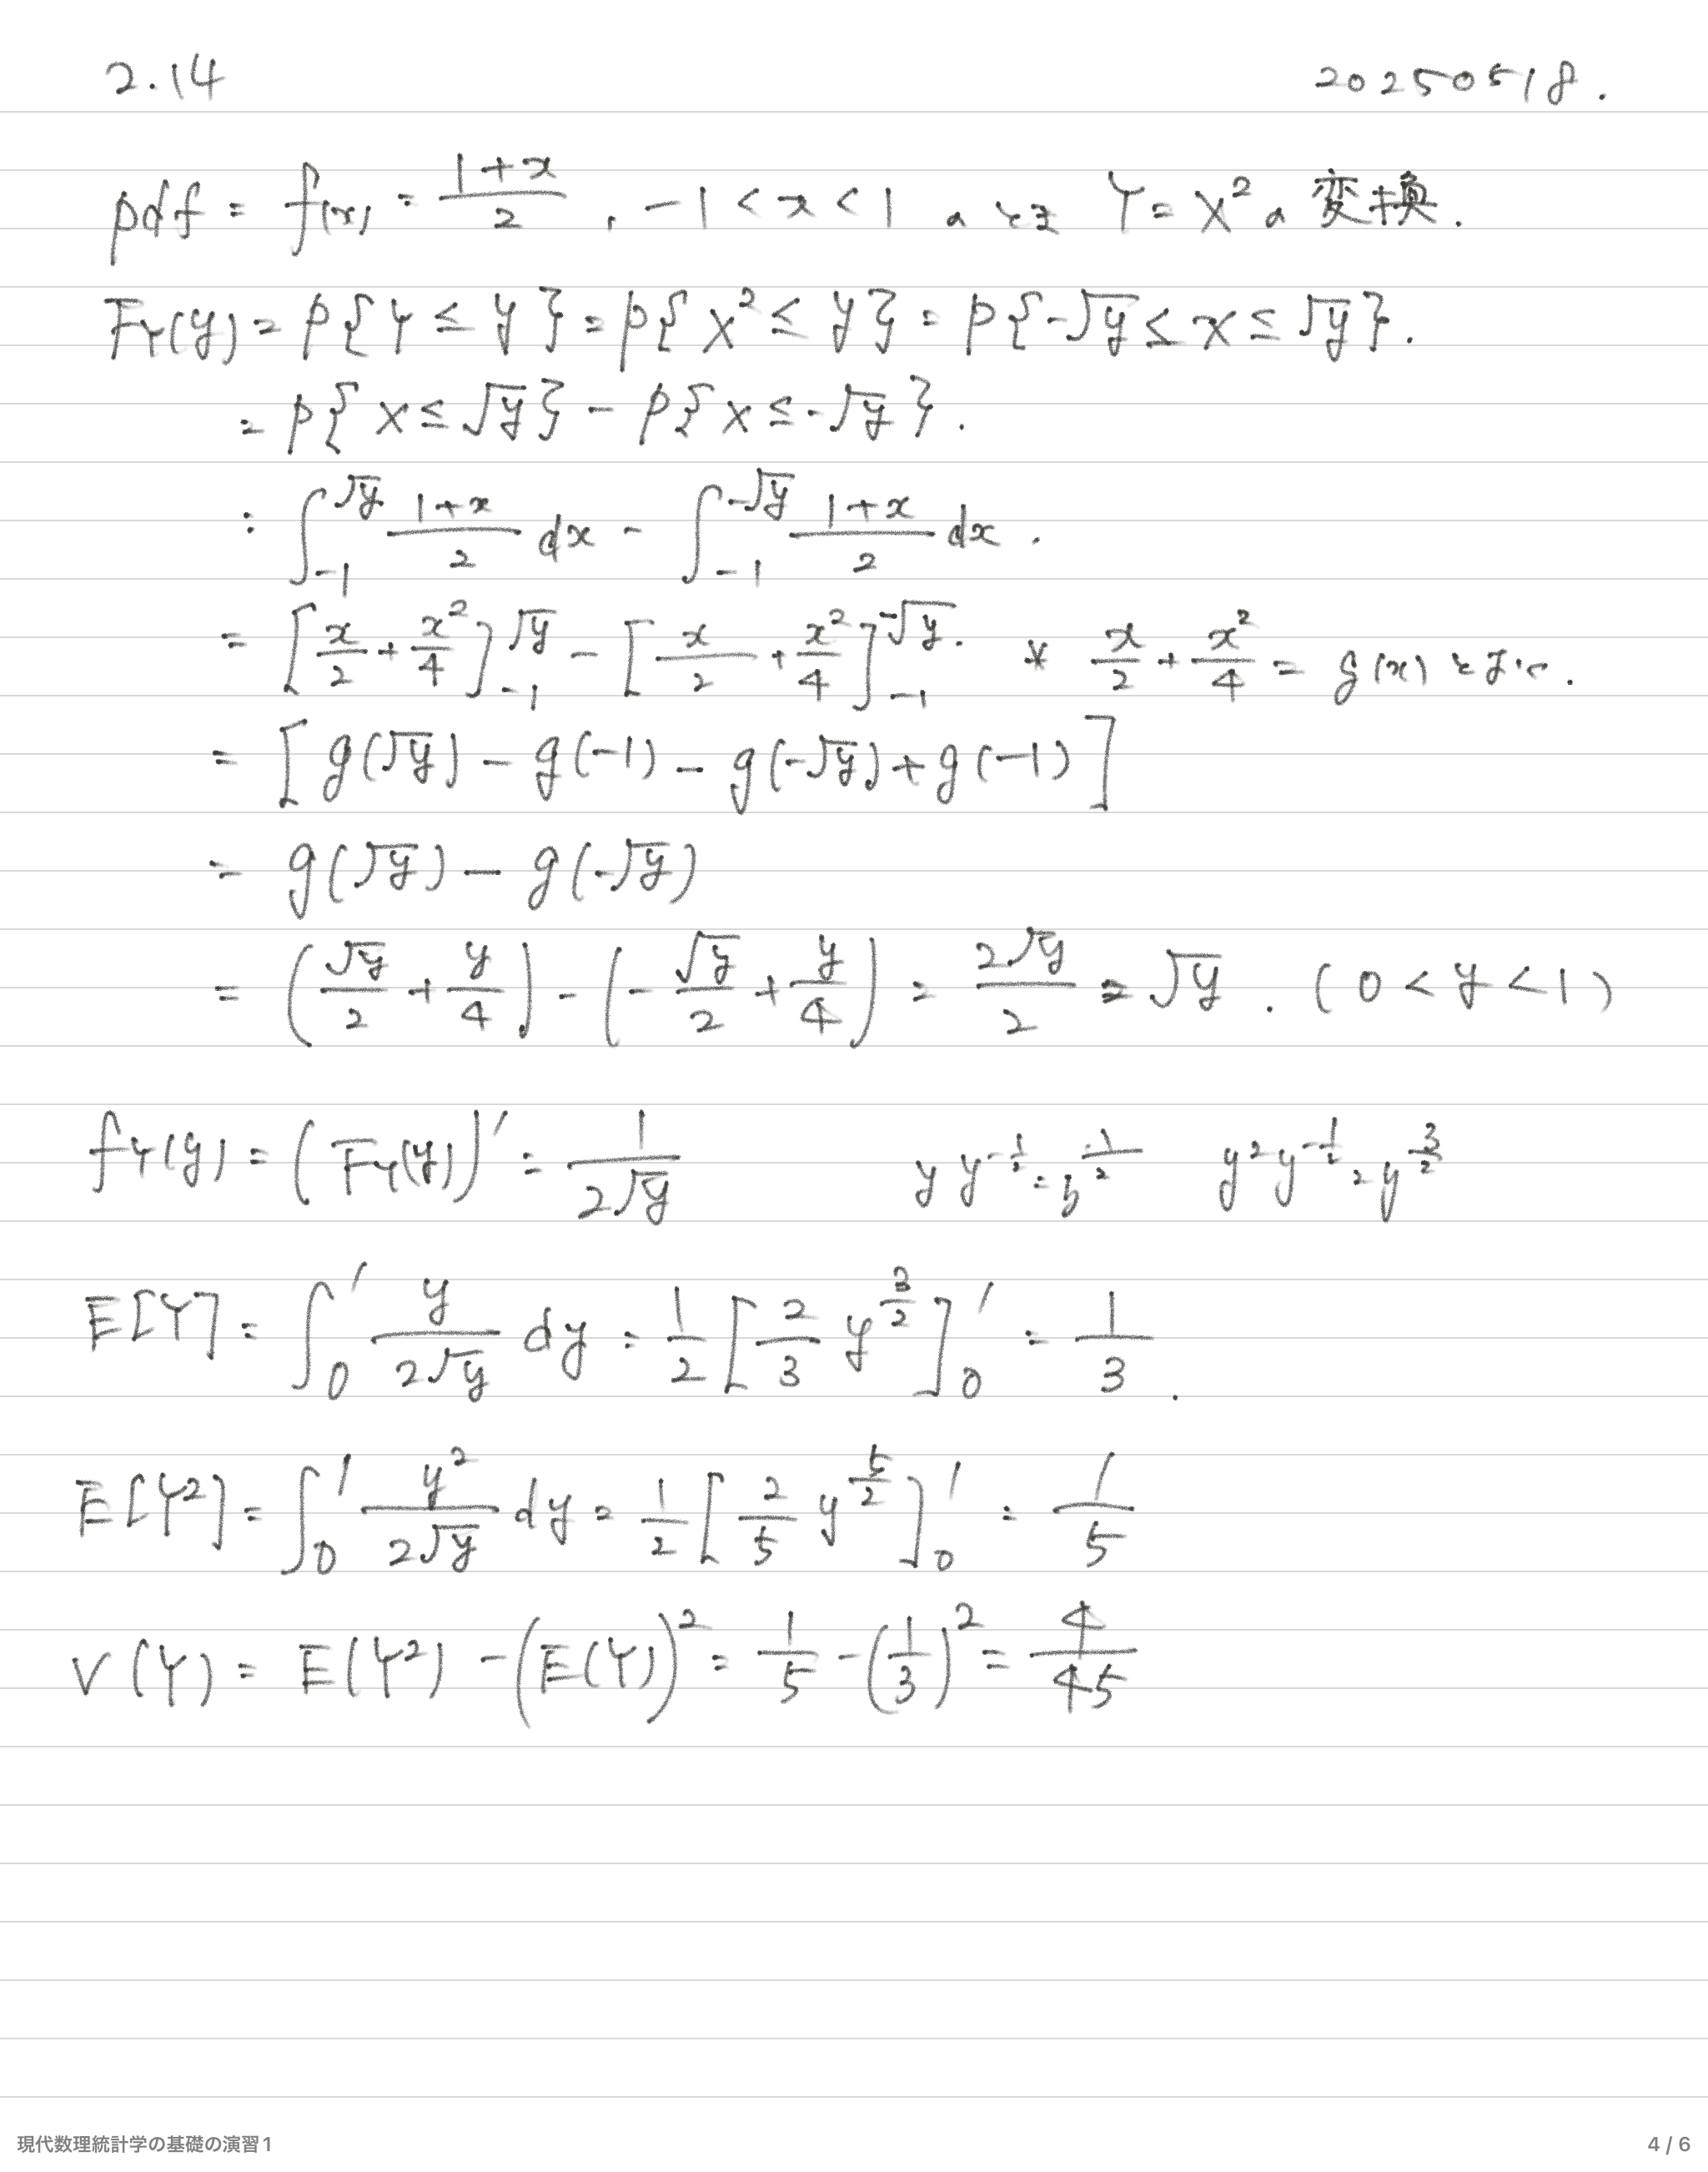 2.14 20250518.
pdf = f(x) = \frac{1+x}{2}, -1 < x < 1 のとき Y = X^2 の 変換.
F_Y(y) = P{Y ≤ y} = P{X^2 ≤ y} = P{-√y ≤ x ≤ √y}.
= P{X ≤ √y} - P{X ≤ -√y}.
= \int_{-1}^{√y} \frac{1+x}{2} dx - \int_{-1}^{-√y} \frac{1+x}{2} dx.
= [\frac{x}{2} + \frac{x^2}{4}]_{-1}^{√y} - [\frac{x}{2} + \frac{x^2}{4}]_{-1}^{-√y}. * \frac{x}{2} + \frac{x^2}{4} = g(x) とおく.
= [g(√y) - g(-1) - g(-√y) + g(-1)]
= g(√y) - g(-√y)
= (\frac{√y}{2} + \frac{y}{4}) - (-\frac{√y}{2} + \frac{y}{4}) = \frac{2√y}{2} = √y. (0 < y < 1)
f_Y(y) = (F_Y(y))' = \frac{1}{2√y} y y^{-\frac{1}{2}} = y^{\frac{1}{2}} y^2 y^{-\frac{1}{2}} = y^{\frac{3}{2}}
E[Y] = \int_0^1 \frac{y}{2√y} dy = \frac{1}{2} [\frac{2}{3} y^{\frac{3}{2}}]_0^1 = \frac{1}{3}.
E[Y^2] = \int_0^1 \frac{y^2}{2√y} dy = \frac{1}{2} [\frac{2}{5} y^{\frac{5}{2}}]_0^1 = \frac{1}{5}
V(Y) = E(Y^2) - (E(Y))^2 = \frac{1}{5} - (\frac{1}{3})^2 = \frac{4}{45}
現代数理統計学の基礎の演習1 4 / 6